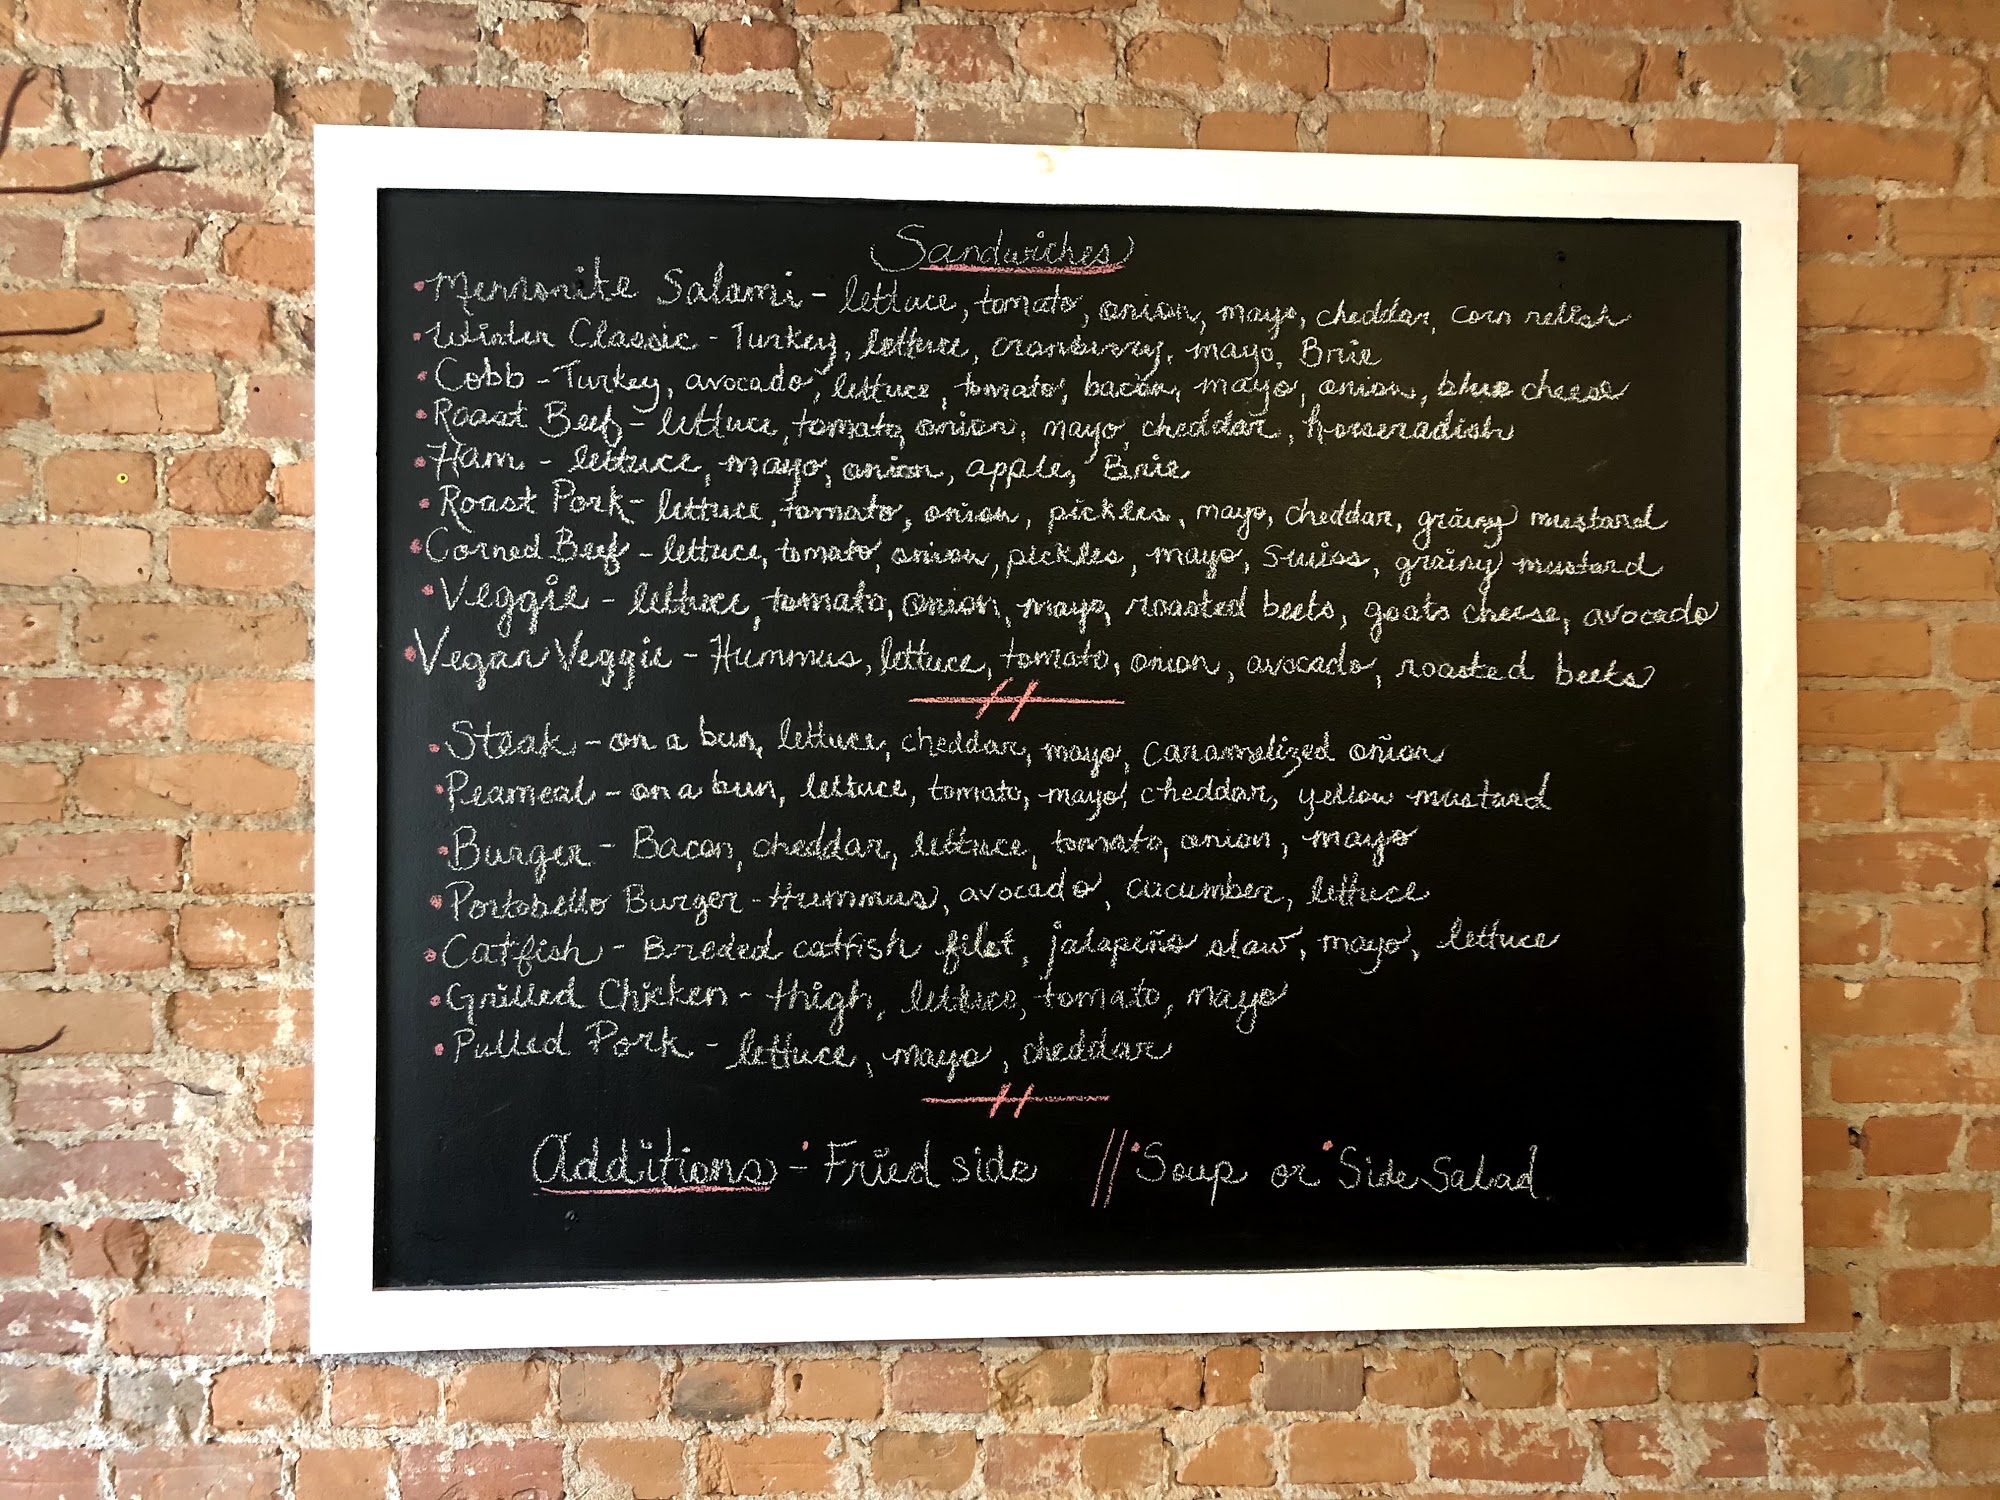 Sandwiches
• Mennonite Salami - lettuce, tomato, onion, mayo, cheddar, corn relish
• Winter Classic - Turkey, lettuce, cranberry, mayo, Brie
• Cobb - Turkey, avocado, lettuce, tomato, bacon, mayo, onion, blue cheese
• Roast Beef - lettuce, tomato, onion, mayo, cheddar, horseradish
• Ham - lettuce, mayo, onion, apple, Brie
• Roast Pork - lettuce, tomato, onion, pickles, mayo, cheddar, grainy mustard
• Corned Beef - lettuce, tomato, onion, pickles, mayo, swiss, grainy mustard
• Veggie - lettuce, tomato, onion, mayo, roasted beets, goats cheese, avocado
• Vegan Veggie - Hummus, lettuce, tomato, onion, avocado, roasted beets
• Steak - on a bun, lettuce, cheddar, mayo, caramelized onion
• Peameal - on a bun, lettuce, tomato, mayo, cheddar, yellow mustard
• Burger - Bacon, cheddar, lettuce, tomato, onion, mayo
• Portobello Burger - Hummus, avocado, cucumber, lettuce
• Catfish - Breded catfish filet, jalapeño slaw, mayo, lettuce
• Grilled Chicken - thigh, lettuce, tomato, mayo
• Pulled Pork - lettuce, mayo, cheddar
Additions - • Fried side // • Soup or • Side Salad